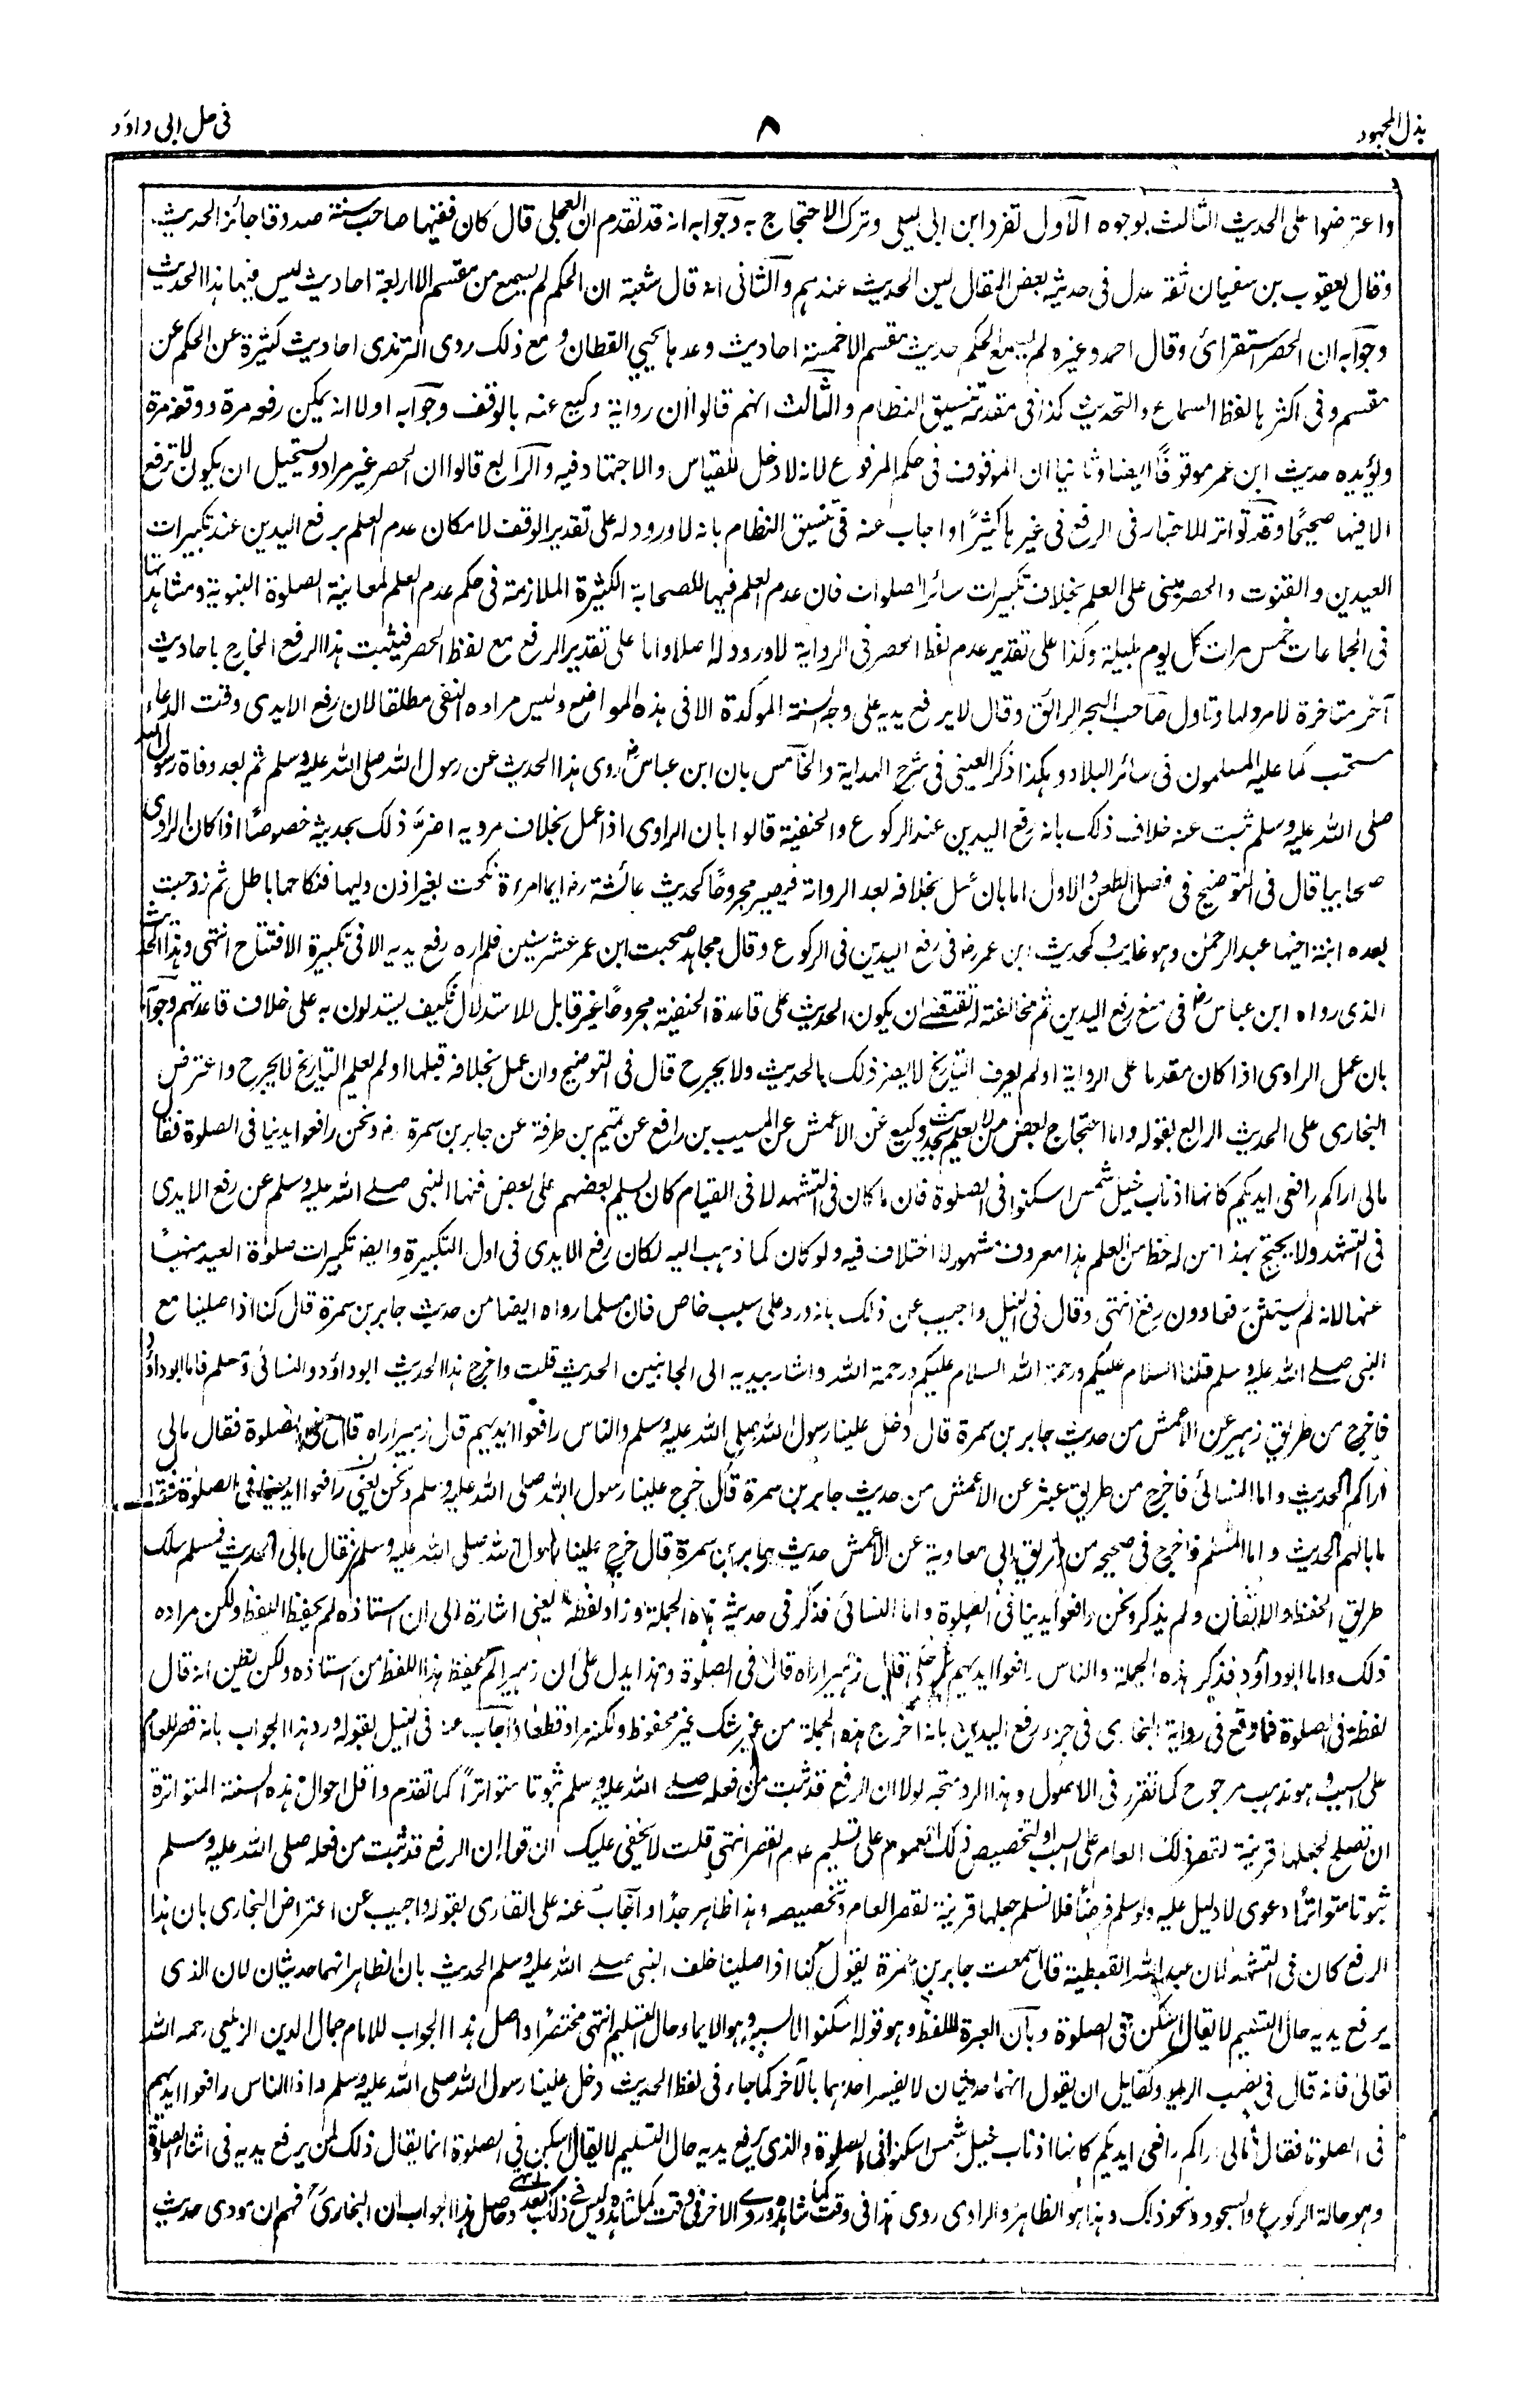 بذل المجهود
٨
فى حل ابى داؤد
واعترضوا على الحديث الثالث بوجوه الاول تفرد ابن ابى ليلى وترك الاحتجاج به وجوابه انه قد تقدم ان العجلى قال كان فقيها صاحب سنة صدوقا جائز الحديث
وقال يعقوب بن سفيان ثقة عدل فى حديثه بعض المقال لين الحديث عندهم والثانى انه قال شعبة ان الحكم لم يسمع من مقسم الا اربعة احاديث ليس فيها هذا الحديث
وجوابه ان الحصر استقرائ وقال احمد وغيره لم يسمع الحكم حديث مقسم الا خمسة احاديث وعدها يحيى القطان ومع ذلك روى الترمذى احاديث كثيرة عن الحكم عن
مقسم وفى اكثرها لفظ السماع والتحديث كذا فى مقدمة تنسيق النظام والثالث انهم قالوا ان رواية وكيع عنه بالوقف وجوابه اولا انه يمكن رفعه مرة ووقفه مرة
ويؤيده حديث ابن عمر موقوفًا ايضا وثانيا ان الموقوف فى حكم المرفوع لانه لا دخل للقياس والاجتهاد فيه والرابع قالوا ان الحصر غير مراد ويستحيل ان يكون لا ترفع
الا فيها صحيحًا وقد تواتر الاخبار فى الرفع فى غيرها كثيرًا واجاب عنه فى تنسيق النظام بانه لا ورود له على تقدير الوقف لامكان عدم العلم برفع اليدين عند تكبيرات
العيدين والقنوت والحصر مبنى على العلم بخلاف تكبيرات سائر الصلوات فان عدم العلم فيها للصحابة الكثيرة الملازمة فى حكم عدم العلم لمعاينة الصلوة النبوية ومشاهدتها
فى الجماعات خمس مرات كل يوم وليلة وكذا على تقدير عدم لفظ الحصر فى الرواية لا ورود له اصلا واما على تقدير الرفع مع لفظ الحصر فيثبت هذا الرفع الخارج باحاديث
آخر متاخرة لامر ولها وتاول صاحب البحر الرائق وقال لا يرفع يديه على وجه السنة الموكدة الا فى هذه المواضع وليس مراده النفى مطلقا لان رفع الايدى وقت الدعاء
مستحب كما عليه المسلمون فى سائر البلاد وهكذا ذكر العينى فى شرح الهداية والخامس بان ابن عباس روى هذا الحديث عن رسول الله صلى الله عليه وسلم ثم بعد وفاة رسول الله
صلى الله عليه وسلم ثبت عنه خلاف ذلك بانه رفع اليدين عند الركوع والحنفية قالوا بان الراوى اذا عمل بخلاف مرويه اضر ذلك بحديثه خصوصًا اذا كان الراوى
صحابيا قال فى التوضيح فى فصل الطعن والاول اما بان عمل بخلافه بعد الرواية فيصير مجروحًا كحديث عائشة رض ايما امرءة نكحت بغير اذن وليها فنكاحها باطل ثم زوجت
بعده ابنة اخيها عبد الرحمن وهو غائب وكحديث ابن عمر رض فى رفع اليدين فى الركوع وقال مجاهد صحبت ابن عمر عشر سنين فلم اره رفع يديه الا فى تكبيرة الافتتاح انتهى وهذا الحديث
الذى رواه ابن عباس رض فى منع رفع اليدين ثم مخالفته له تقتضى ان يكون الحديث على قاعدة الحنفية مجروحًا غير قابل للاستدلال فكيف يستدلون به على خلاف قاعدتهم وجوابه
بان عمل الراوى اذا كان مقدما على الرواية او لم يعرف التاريخ لا يضر ذلك بالحديث ولا يجرح قال فى التوضيح وان عمل بخلافه قبلها او لم يعلم التاريخ لا يجرح واعترض
البخارى على الحديث الرابع بقوله واما احتجاج بعض من لا يعلم بحديث وكيع عن الاعمش عن المسيب بن رافع عن تميم بن طرفة عن جابر بن سمرة رض ونحن رافعوا ايدينا فى الصلوة فقال
مالى اراكم رافعى ايديكم كانها اذناب خيل شمس اسكنوا فى الصلوة فان ما كان فى التشهد لا فى القيام كان يسلم بعضهم على بعض فنها النبى صلے الله عليه وسلم عن رفع الايدى
فى التشهد ولا يحتج بهذا من له حظ من العلم هذا معروف مشهور لا اختلاف فيه ولو كان كما ذهب اليه لكان رفع الايدى فى اول التكبيرة وايضا تكبيرات صلوة العيد منهيًا
عنها لانه لم يستثن رفعا دون رفع انتهى وقال فى النيل واجيب عن ذلك بانه ورد على سبب خاص فان مسلما رواه ايضا من حديث جابر بن سمرة قال كنا اذا صلينا مع
النبى صلے الله عليه وسلم قلنا السلام عليكم ورحمة الله السلام عليكم ورحمة الله واشار بيديه الى الجانبين الحديث قلت واخرج هذا الحديث ابو داؤد والنسائى ومسلم فاما ابو داؤد
فاخرج من طريق زهير عن الاعمش من حديث جابر بن سمرة قال دخل علينا رسول الله صلى الله عليه وسلم والناس رافعوا ايديهم قال زهير اراه قال فى الصلوة فقال مالى
اراكم الحديث واما النسائى فاخرج من طريق عبثر عن الاعمش من حديث جابر بن سمرة قال خرج علينا رسول الله صلى الله عليه وسلم ونحن يعنى رافعوا ايدينا فى الصلوة فقال
ما بالهم الحديث واما المسلم فاخرج فى صحيحه من طريق ابى معاوية عن الاعمش حديث جابر بن سمرة قال خرج علينا رسول الله صلى الله عليه وسلم فقال مالى الحديث فمسلم سلك
طريق الحفظ والاتقان ولم يذكر ونحن رافعوا ايدينا فى الصلوة واما النسائى فذكر فى حديثه هذه الجملة وزاد لفظة يعنى اشارة الى ان استاذه لم يحفظ اللفظ ولكن مراده
ذلك واما ابو داؤد فذكر هذه الجملة والناس رافعوا ايديهم ثم قال زهير اراه قال فى الصلوة وهذا يدل على ان زهيرا لم يحفظ هذا اللفظ من استاذه ولكن يظن انه قال
لفظة فى الصلوة فما وقع فى رواية البخارى فى جزء رفع اليدين بانه اخرج هذه الجملة من غير شك غير محفوظ ولكنه مراد قطعا واجاب عنه فى النيل بقوله ورد هذا الجواب بانه قصر للعام
على السبب وهو مذهب مرجوح كما تقرر فى الاصول وهذا الرد متجه لولا ان الرفع قد ثبت من فعله صلے الله عليه وسلم ثبوتا متواترًا كما تقدم واقل احوال هذه السنة المتواترة
ان تصلح لجعلها قرينة لقصر ذلك العام على السبب او لتخصيص ذلك العموم على تسليم عدم القصر انتهى قلت لا يخفى عليك ان قوله ان الرفع قد ثبت من فعله صلى الله عليه وسلم
ثبوتا متواترًا دعوى لا دليل عليه ولو سلم فرضًا فلا نسلم جعلها قرينة لقصر العام وتخصيصه وهذا ظاهر جدًا واجاب عنه على القارى بقوله واجيب عن اعتراض البخارى بان هذا
الرفع كان فى التشهد لان عبد الله القبطية قال سمعت جابر بن سمرة يقول كنا اذا صلينا خلف النبى صلے الله عليه وسلم الحديث بان الظاهر انهما حديثان لان الذى
يرفع يديه حال التسليم لا يقال له اسكن فى الصلوة وبان العبرة للفظ وهو قوله اسكنوا لا لسببه وهو الايماء حال التسليم انتهى مختصرًا واصل هذا الجواب للامام جمال الدين الزيلعى رحمه الله
تعالى فانه قال فى نصب الراية ولقائل ان يقول انهما حديثان لا يفسر احدهما بالآخر كما جاء فى لفظ الحديث دخل علينا رسول الله صلى الله عليه وسلم واذا الناس رافعوا ايديهم
فى الصلوة فقال مالى اراكم رافعى ايديكم كانها اذناب خيل شمس اسكنوا فى الصلوة والذى يرفع يديه حال التسليم لا يقال له اسكن فى الصلوة انما يقال ذلك لمن يرفع يديه فى اثناء الصلوة
وهو حالة الركوع والسجود ونحو ذلك وهذا هو الظاهر والراوى روى هذا فى وقت كما شاهده وروى الاخر فى وقت كما شاهده وليس فى ذلك بعد انتهى وحاصل هذا الجواب ان البخارى فهم ان مودى حديث